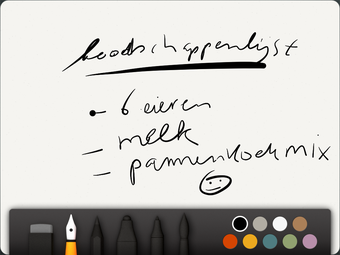 boodschappenlijst
- 6 eieren
- melk
- pannenkoekmix